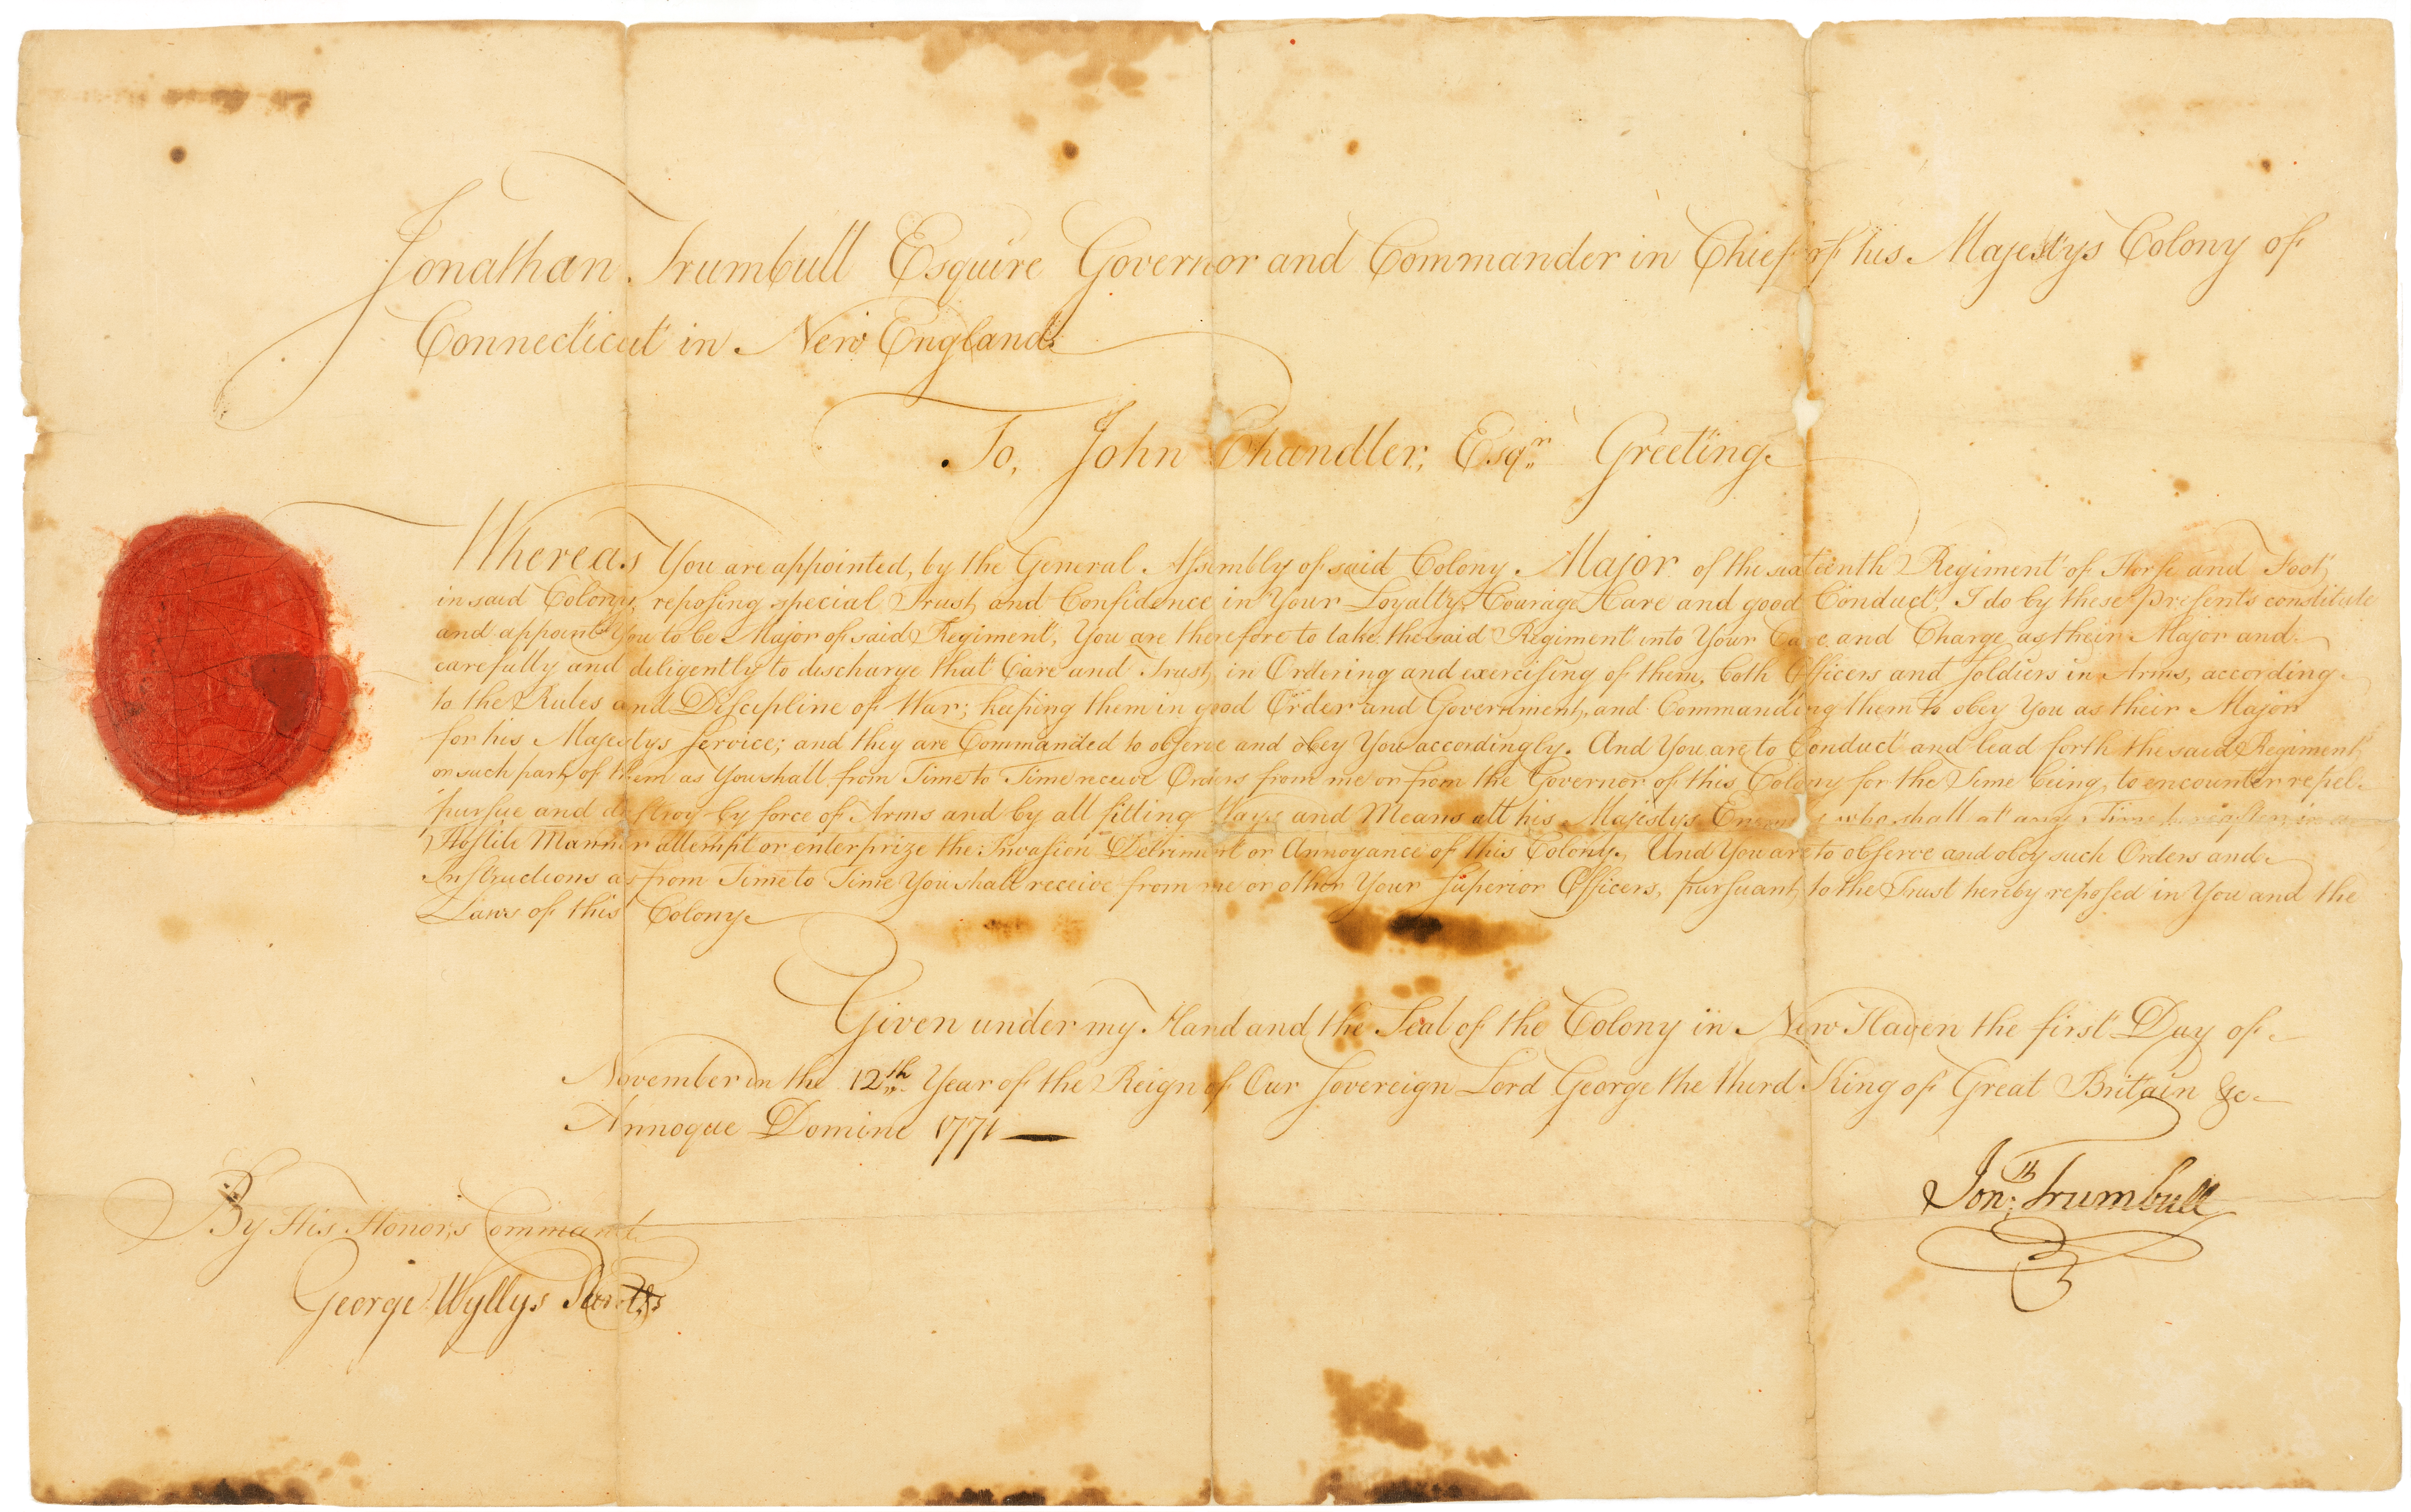 Jonathan Trumbull Esquire Governor and Commander in Chief of his Majestys Colony of
Connecticut in New England.
To, John Chandler, Esqr. Greeting.
Whereas You are appointed, by the General Assembly of said Colony Major of the sixteenth Regiment of Horse and Foot,
in said Colony, reposing special Trust and Confidence in Your Loyalty, Courage, Care and good Conduct, I do by these presents constitute
and appoint You to be Major of said Regiment, You are therefore to take the said Regiment into Your Care and Charge as their Major and
carefully and diligently to discharge that Care and Trust, in Ordering and exercising of them, both Officers and Soldiers in Arms, according
to the Rules and Discipline of War; keeping them in good Order and Government, and Commanding them to obey You as their Major
for his Majestys Service; and they are Commanded to observe and obey You accordingly. And You are to Conduct and lead forth the said Regiment,
or such part, of them as You shall from Time to Time receive Orders from me or from the Governor of this Colony for the Time being, to encounter repel
pursue and destroy by force of Arms and by all fitting Ways and Means all his Majestys Enemies who shall at any Time hereafter in a
Hostile Manner attempt or enterprize the Invasion Detriment or Annoyance of this Colony. And You are to observe and obey such Orders and
Instructions as from Time to Time You shall receive from me or other Your Superior Officers, pursuant, to the Trust hereby reposed in You and the
Laws of this Colony.
Given under my Hand and the Seal of the Colony in New Haven the first Day of
November in the 12th Year of the Reign of Our Sovereign Lord George the third King of Great Britain &c
Annoque Domini 1771
Jonth: Trumbull
By His Honors Command
George Wyllys